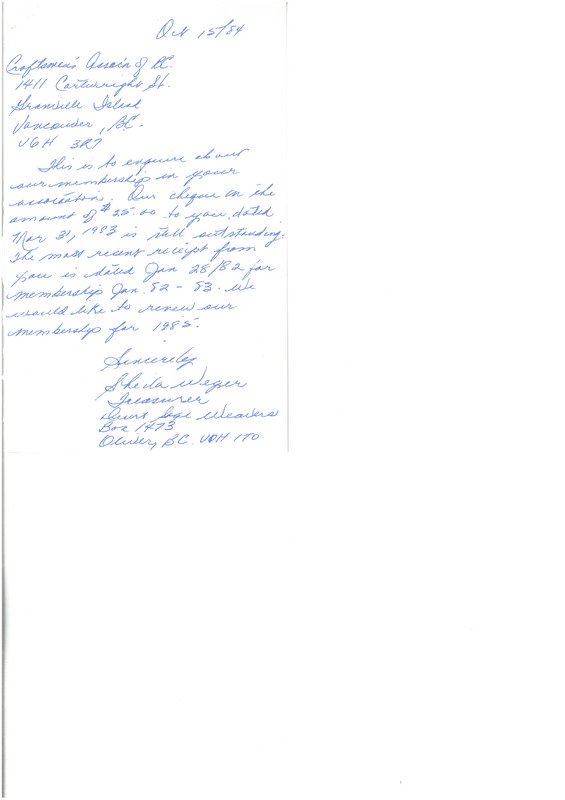 Oct 15/84
Craftsmen's Assoc'n of BC.
1411 Cartwright St.
Granville Island
Vancouver, BC.
V6H 3R7
This is to enquire about
our membership in your
association. Our cheque in the
amount of $25.00 to you, dated
Mar 31, 1983 is still outstanding.
The most recent receipt from
you is dated Jan 28/82 for
membership Jan. 82 - 83. We
would like to renew our
membership for 1985.
Sincerely
Sheila
Treasurer
Desert Sage Weavers
Box 1473
Oliver, BC. V0H 1T0